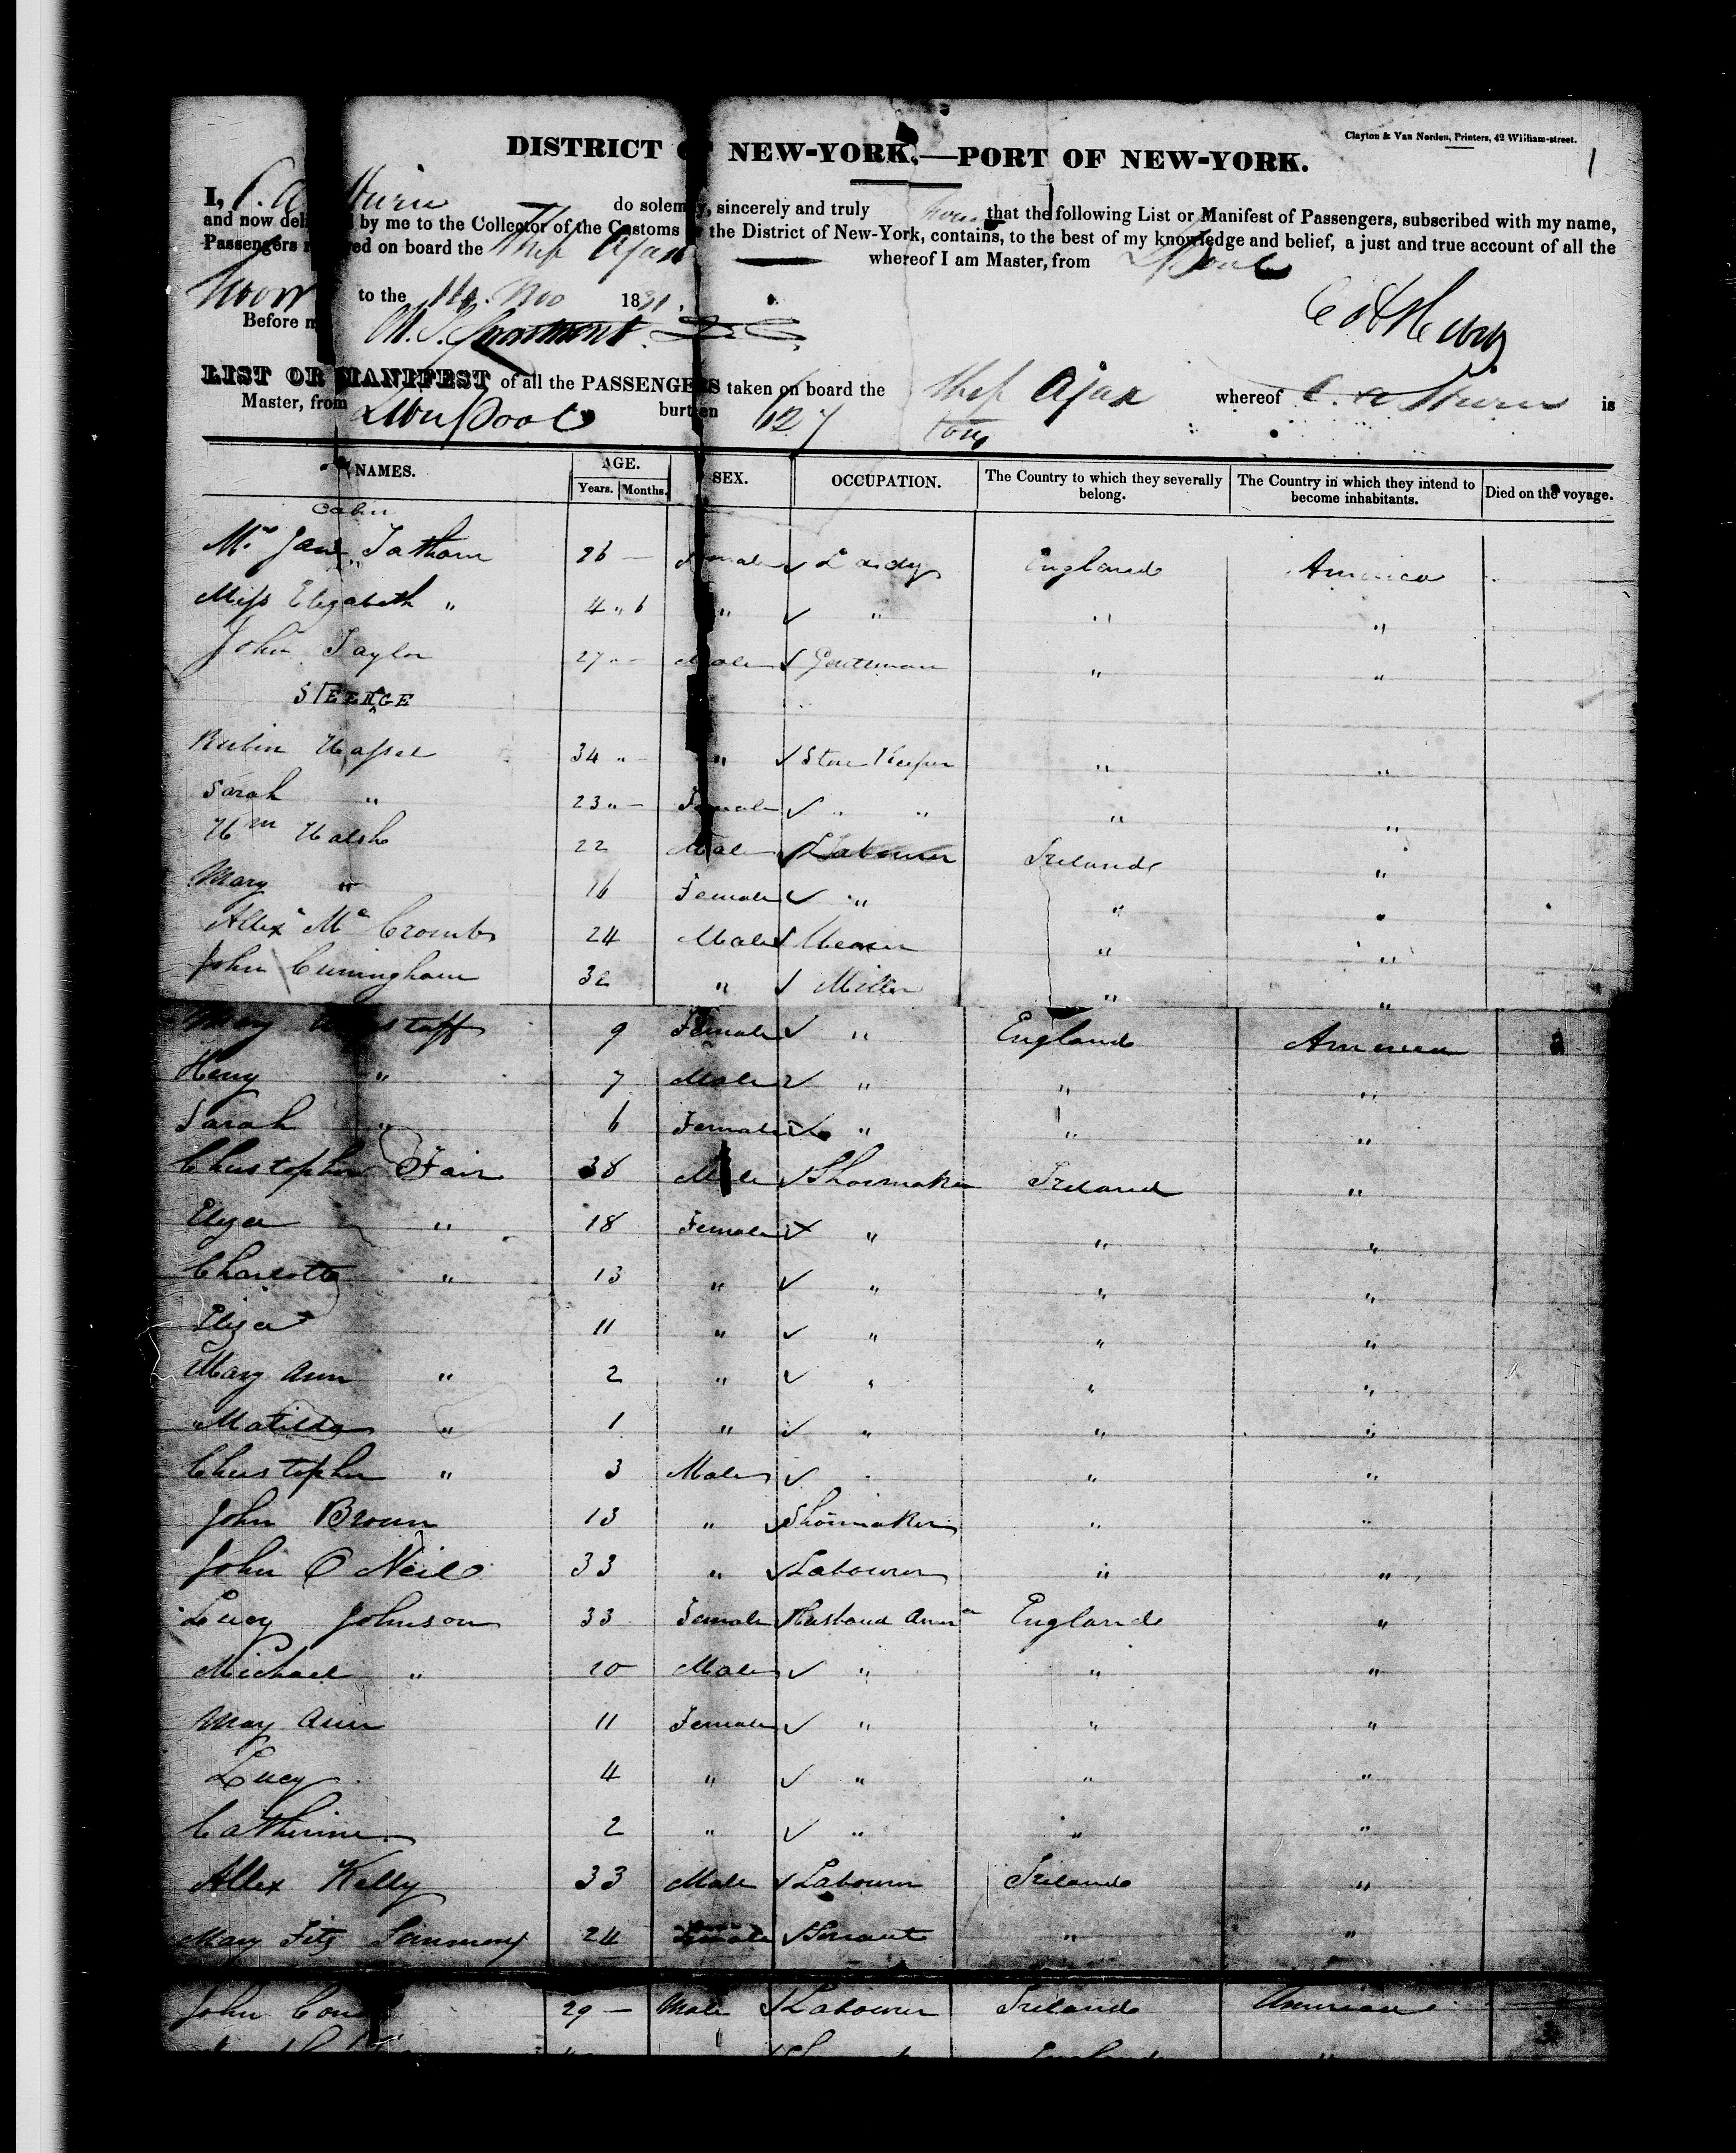 Clayton & Van Norden, Printers, 42 William-street.
1
DISTRICT OF NEW-YORK.—PORT OF NEW-YORK.
I, do solemnly, sincerely and truly that the following List or Manifest of Passengers, subscribed with my name,
and now delivered by me to the Collector of the Customs the District of New-York, contains, to the best of my knowledge and belief, a just and true account of all the
Passengers received on board the Ship Ajax whereof I am Master, from
to the Nov 1831.
Before me
LIST OR MANIFEST of all the PASSENGERS taken on board the Ship Ajax whereof is
Master, from Liverpool burthen 627 tons
NAMES. AGE. SEX. OCCUPATION. The Country to which they severally belong. The Country in which they intend to become inhabitants. Died on the voyage.
Years. Months.
Cabin
Mrs Jane Tatham 26 — Female Lady England America
Miss Elizabeth " 4 " 6 " " " "
John Taylor 27 " — Male Gentleman " "
STEERAGE
34 " — " Store Keeper " "
Sarah " 23 " — Female " " " "
Wm Walsh 22 Male Labourer Ireland "
Mary " 16 Female " " "
Allexr Mc Crombs 24 Male Weaver " "
John Cuningham 32 " Miller " "
Mary 9 Female " England America 2
Henry " 7 Male " " "
Sarah " 6 Female " " "
Christopher Fair 38 Male Shoemaker Ireland "
Eliza " 18 Female " " "
Charlotte " 13 " " " "
Eliza 11 " " " "
Mary Ann " 2 " " " "
Matilda " 1 " " " "
Christopher " 3 Male " " "
John Brown 13 " Shoemaker " "
John O Neil 33 " Labourer " "
Lucy Johnson 33 Female Husband Amna England "
Michael " 10 Male " " "
Mary Ann 11 Female " " "
Lucy 4 " " " "
Catherine 2 " " " "
Allex Kelly 33 Male Labourer Ireland "
Mary Fitz Simmons 24 Female Servant " "
John 29 — Male Labourer Ireland American
3